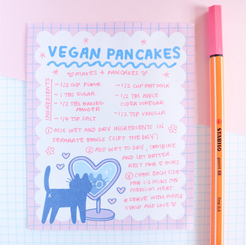 VEGAN PANCAKES
MAKES 4 PANCAKES
INGREDIENTS
- 1/2 CUP FLOUR
- 1 TBS SUGAR
- 1/2 TBS BAKING
POWDER
- 1/4 TSP SALT
- 1/2 CUP OAT MILK
- 1/2 TBS APPLE
CIDER VINEGAR
- 1/2 TSP VANILLA
① MIX WET AND DRY INGREDIENTS IN
SEPARATE BOWLS
② ADD WET TO DRY, COMBINE
AND LET BATTER
REST FOR 5 MINS
③ COOK EACH SIDE
MEDIUM HEAT
SERVE WITH
AND LOVE
STABILO